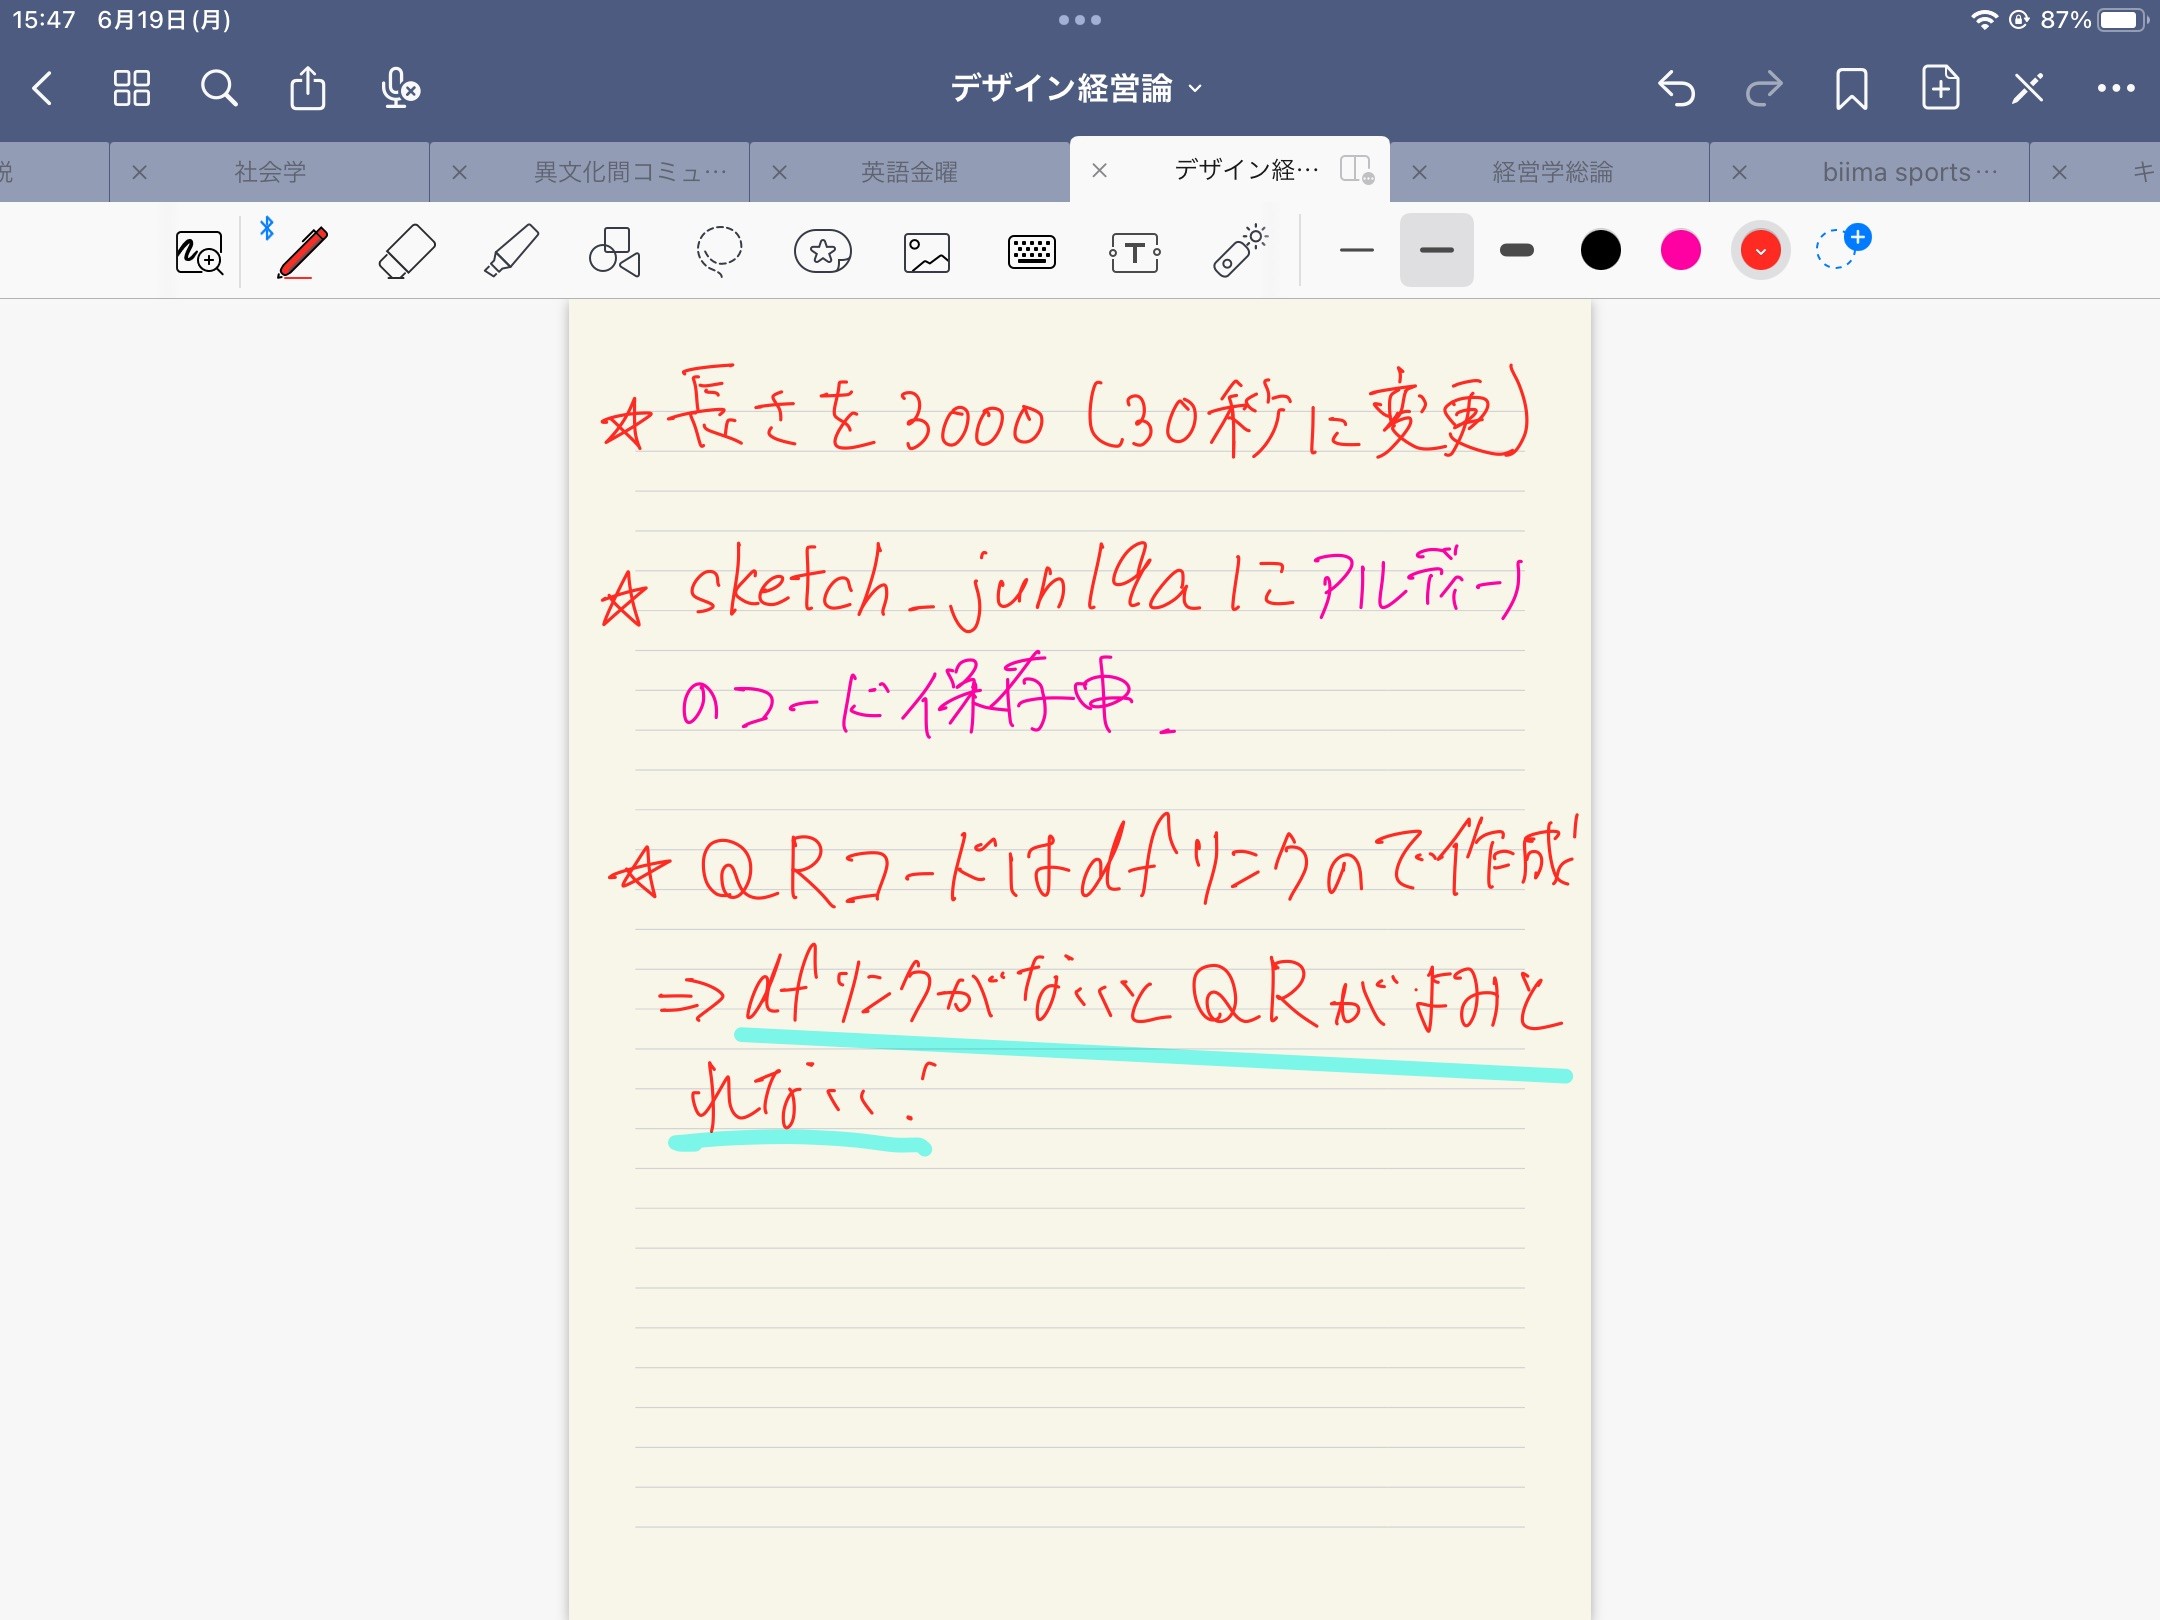 15:47 6月19日(月) 87%
デザイン経営論
説 社会学 異文化間コミュ… 英語金曜 デザイン経… 経営学総論 biima sports… キ
☆長さを3000(30秒に変更)
☆sketch_jun19aにアルディーノ
のコード保存中.
☆QRコードはdfリンクので作成
⇒dfリンクがないとQRがよみと
れない!